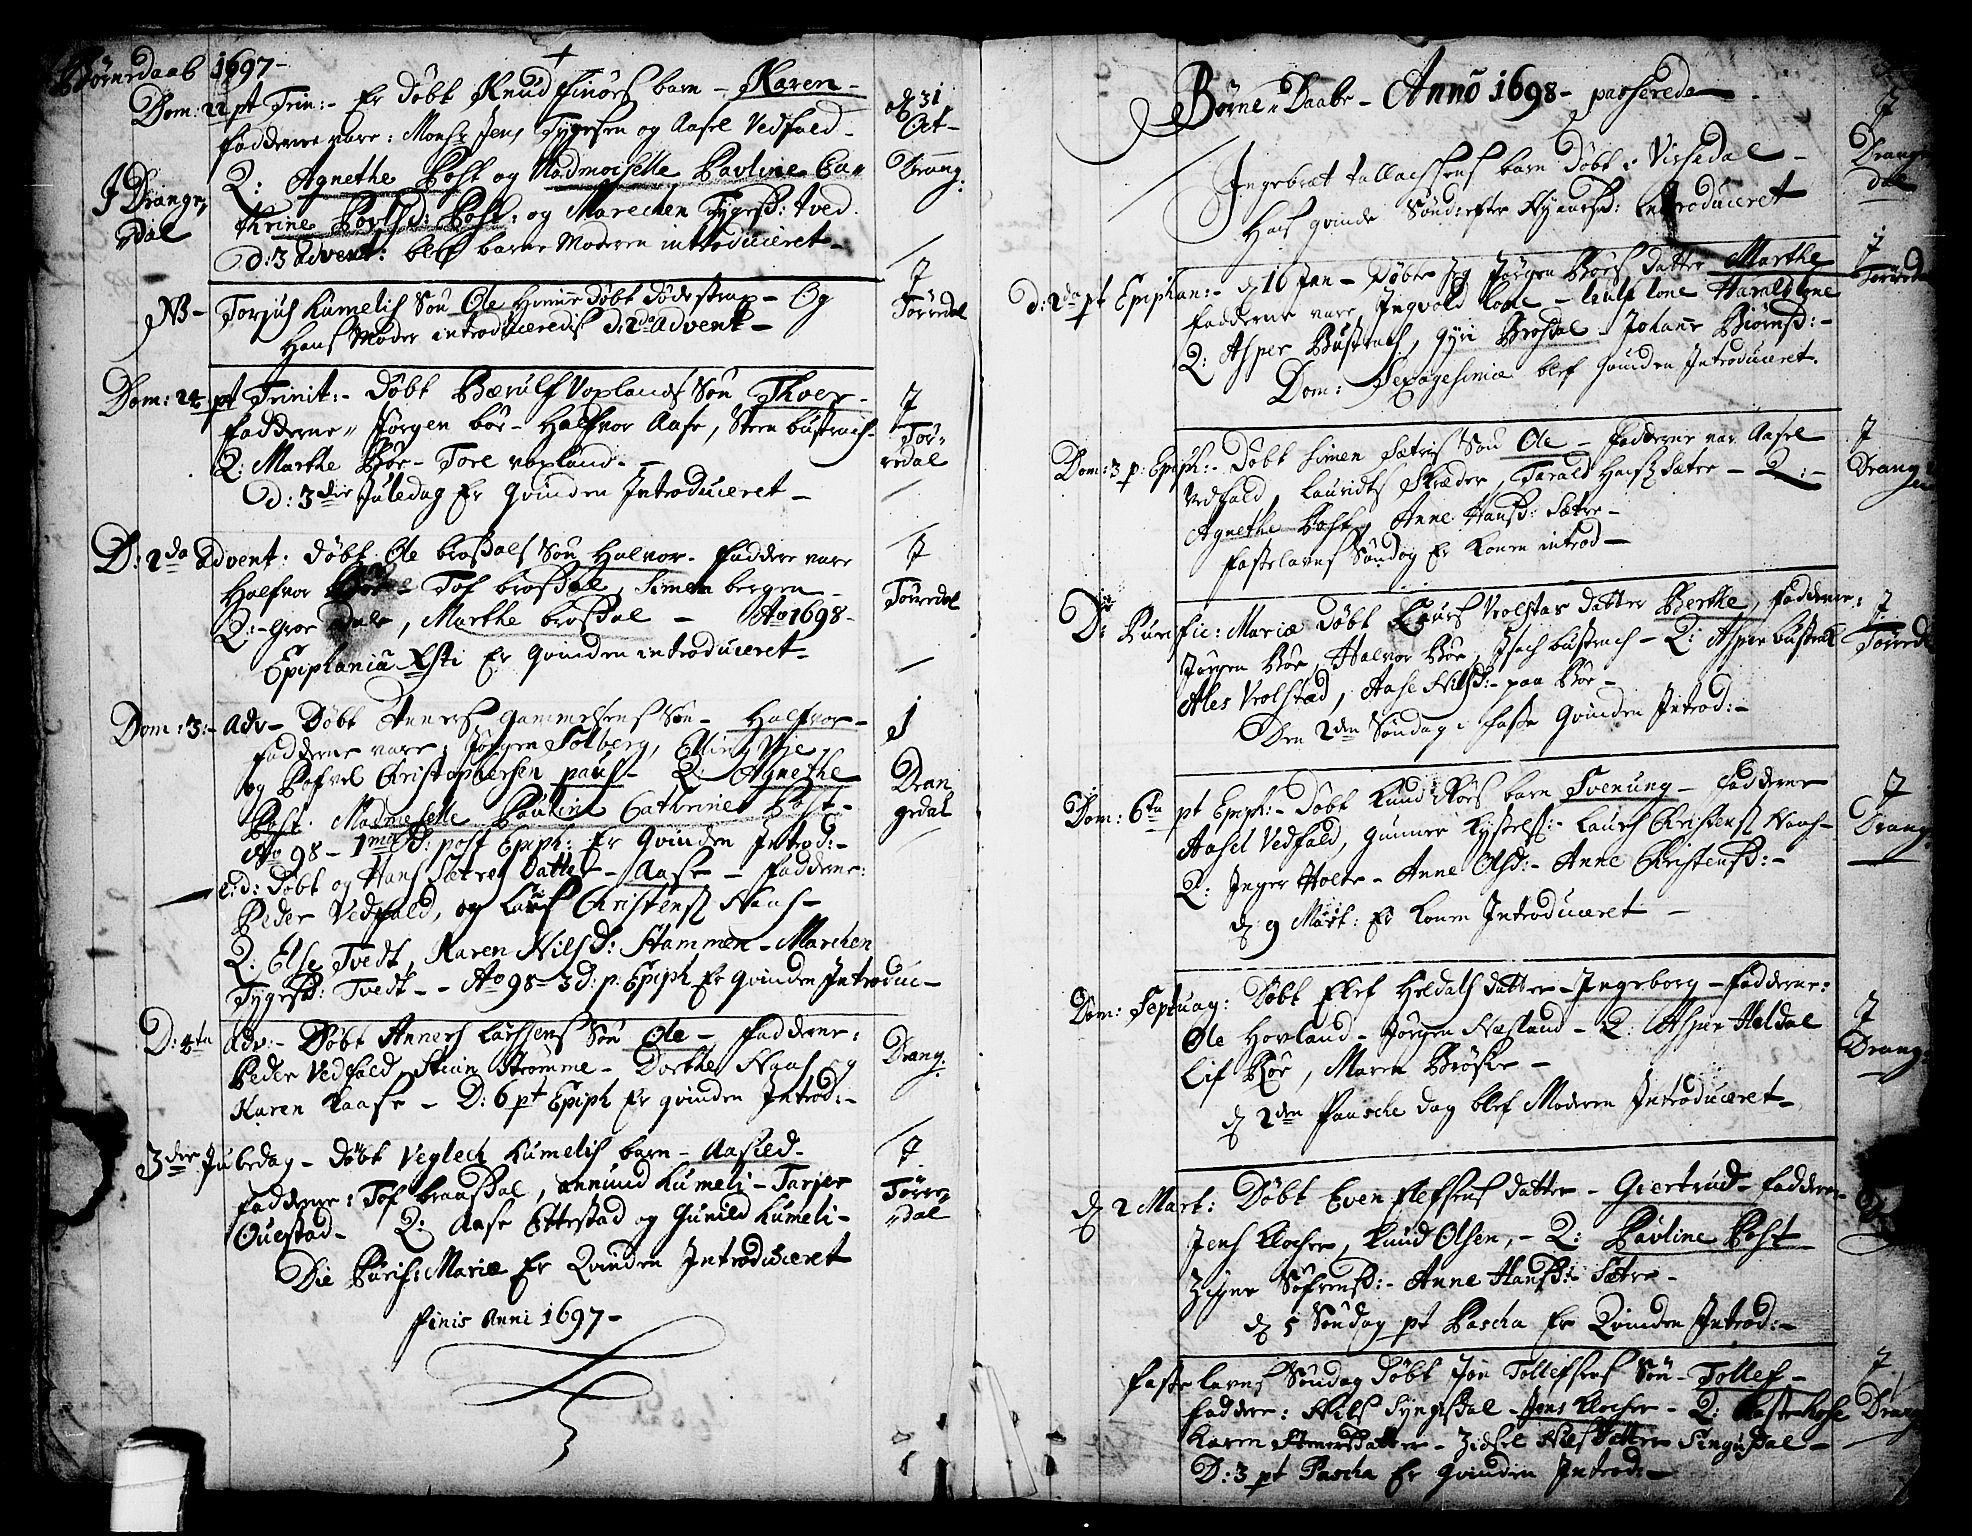 Børnedaab 1697-
Dom: 22 pt Trin:- Er døbt Knud barn - Karen-
Fadderne vare: Mons: Jens Tygesen og Aasel Vedfald-
31 Oct-
Drang:
I Drange
dal
Q: Agnethe Post og Madmoiselle Pavline Ca
thrine Povlsd: Post: og Marechen Tygesd: tved
d: 3 advent: blef barns Moderen introduceret-
NB- Torjus Kumelis Søn Ole Hiemme døbt - Og
Hans Moder introduceredis d: 2da advent-
I
Tørredal
Dom: 24 pt Trinit:- Døbt Bærulf Voplands Søn Thoer-
Fadderne Jørgen bør- Halfvor Aase, Steen
Q: Marthe Bør- Tore vopland.-
d: 3die Juledag Er Qvinden Introduceret-
I
Tør
redal
D: 2da Advent: døbt Ole Søn Halvor- Faddere vare
Halfvor Tof Simen bergen-
Q:- Groe Dale, Marthe - Ao 1698-
Epiphania Xsti Er Qvinden introduceret-
I
Tørredal
Dom: 3:- Adv- Døbt Anners Gammelsens Søn- Halfvor-
Fadderne vare: Jørgen Solberg,
og Pofvel Christophersen paus- Q: Agnethe
Post. Madmeselle Pauline Cathrine Post-
Ao 98- 1ma D: post Epiph: Er Qvinden Introd:-
I
Dran
gedal
e: d: Døbt og Hans Sætres Datter- Aase- Fadderne:
Peder Vedfald, og Laurs Christens Naas-
Q: Else Tvedt, Karen Nilsd: Stammen- Marchen
Tygesd: Tvedt-- Ao 98- 3 d: p: Epiph Er Qvinden Introduc-
D: 4ta Adv:- Døbt Anners Larssens Søn Ole- Fadderne:
Peder Vedfald, Strømme- Dorthe Naas, og
Karen Kaase- D: 6 pt Epiph Er qvinden Introd:-
Drang:
3die Juledag- døbt Veglech Kumelis barn- Aasled-
Fadderne: Tof annund Kumeli- Tarjer
Ouestad- Q: Aase Ettestad og Gunild Kumeli-
Die Purif: Mariæ Er Qvinden Introduceret
I
Tørre
dal
Finis Anni 1697-
Børne Daabe- Anno 1698- passerede
Ingebret Tallachsens barn Døbt i Vissedal-
Hans qvinde Sønd: efter Nyaarsd: Introduceret
I
Drange
dal
D: 2da pt Epiphan:- d 16 Jan- Døbte Jeg Jørgen Børs datter Marthe
Fadderne vare, Ingvold
Q: Asper Gyri - Johane Biørnsd:-
Dom: Sexagesimæ blef Qvinden Introduceret.
I
Tørreda
Dom: 3 p: Epiph:- Døbt Simen Sætris Søn Ole- Fadderne var Aasel
Vedfald, Lauridts Skræder, Tarald - Q:-
Agnethe Post, Anne Hansd: Sætre-
Fastelavns Søndag Er Konen introd-
I
Drang
D: Purific: Mariæ Døbt Laurs Vrolstas Datter Berthe, Fadderne:
Jørgen Bør, Halvor Bør, - Q: Asper
Ales Vrolstad, Aase Nilsd:- paa Bør-
Den 2den Søndag i Faste Qvinden Introd:-
I
Tørred
Dom: 6ta pt Epiph:- Døbt Knud barn Svenung- Fadderne
Aasel Vedfald, Gunner - Laurs Christens Naas-
Q: Inger Holte- Anne Olsd:- Anne Christensd:-
d 9 Mart: Er Konen Introduceret-
I
Drang:
Dom: Septuag: Døbt Elef Heldals datter- Ingeborg- Fadderne:
Ole Hovland- Jørgen Næsland- Q: Asper Heldal
Lif Bør, Maren Brøske-
d 2den Paasche dag blef Moderen Introduceret-
I
Drang:
d 2 Mart: Døbt Even Elefsens datter- Giertrud- Faddere
Jens Klocher, Knud Olsen,- Q: Pavline Post
Zigne Søfrensd:- Anne Hansd:- Sætre-
d 5 Søndag pt Pascha Er Qvinden Introd:-
Fastelavns Søndag Døbt Jon Tollefsens Søn- Tollef-
Faddere: Nils - Jens Klocher- Q:
Karen - Zidsel Nilsdatter
D: 3 pt Pascha Er Qvinden Introd:-
I
Drang